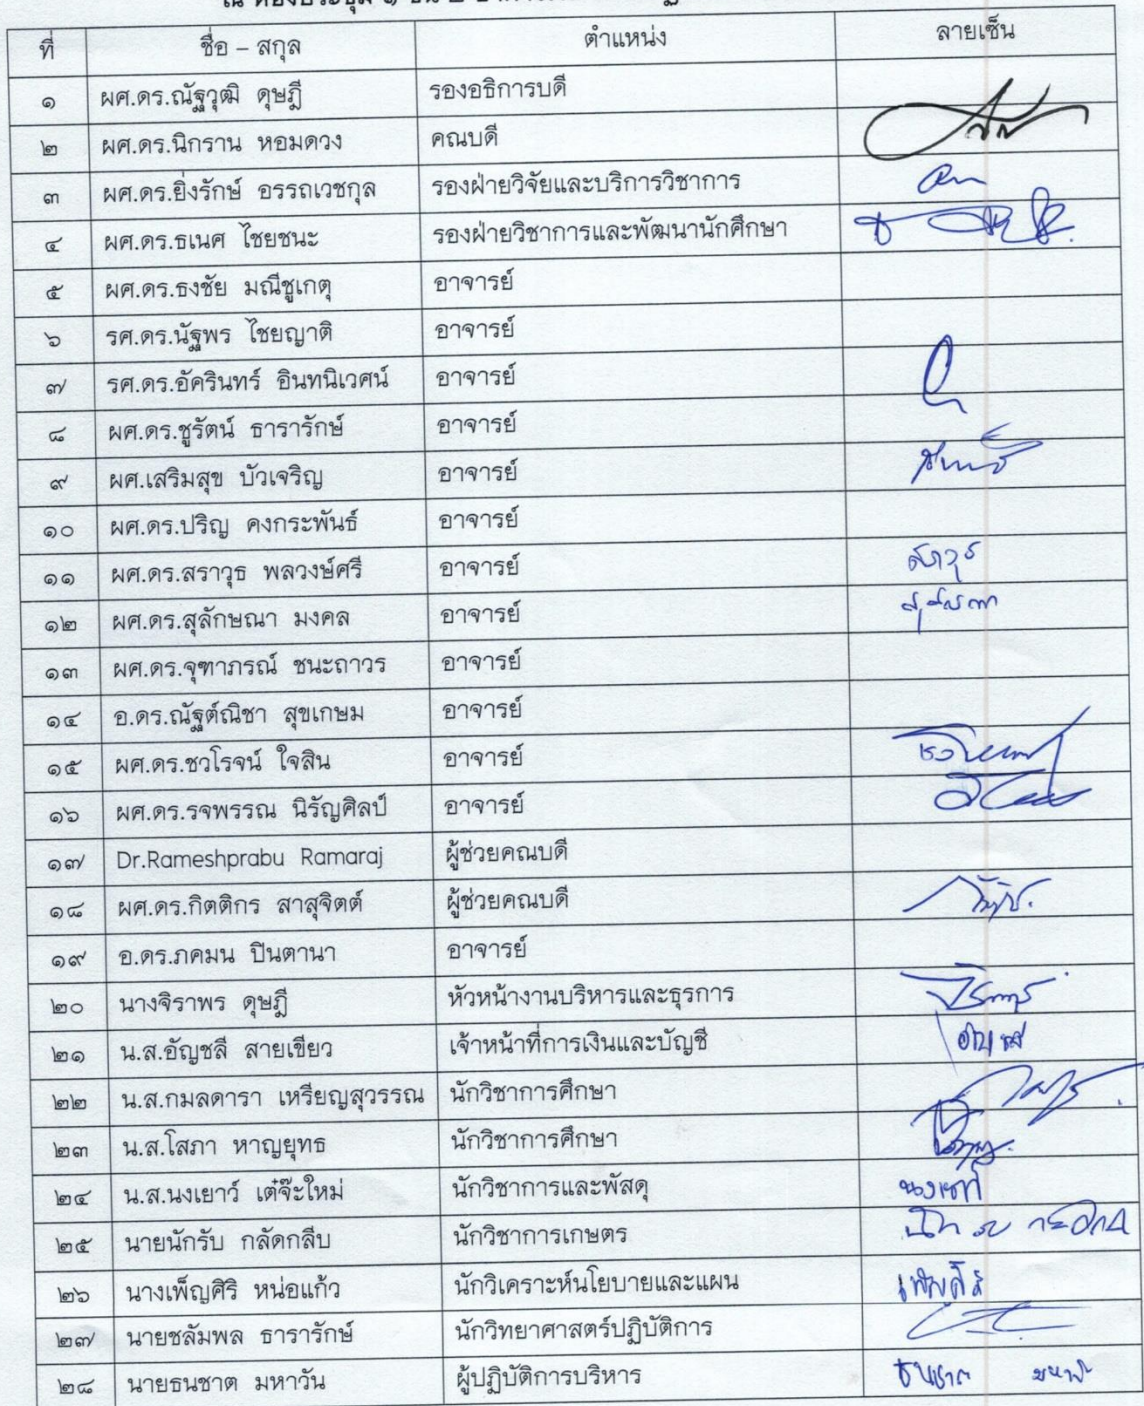 ที่ ชื่อ – สกุล ตำแหน่ง ลายเซ็น
๑ ผศ.ดร.ณัฐวุฒิ ดุษฎี รองอธิการบดี
๒ ผศ.ดร.นิกราน หอมดวง คณบดี
๓ ผศ.ดร.ยิ่งรักษ์ อรรถเวชกุล รองฝ่ายวิจัยและบริการวิชาการ
๔ ผศ.ดร.ธเนศ ไชยชนะ รองฝ่ายวิชาการและพัฒนานักศึกษา
๕ ผศ.ดร.ธงชัย มณีชูเกตุ อาจารย์
๖ รศ.ดร.นัฐพร ไชยญาติ อาจารย์
๗ รศ.ดร.อัครินทร์ อินทนิเวศน์ อาจารย์
๘ ผศ.ดร.ชูรัตน์ ธารารักษ์ อาจารย์
๙ ผศ.เสริมสุข บัวเจริญ อาจารย์
๑๐ ผศ.ดร.ปริญ คงกระพันธ์ อาจารย์
๑๑ ผศ.ดร.สราวุธ พลวงษ์ศรี อาจารย์ สราวุธ
๑๒ ผศ.ดร.สุลักษณา มงคล อาจารย์
๑๓ ผศ.ดร.จุฑาภรณ์ ชนะถาวร อาจารย์
๑๔ อ.ดร.ณัฐต์ณิชา สุขเกษม อาจารย์
๑๕ ผศ.ดร.ชวโรจน์ ใจสิน อาจารย์
๑๖ ผศ.ดร.รจพรรณ นิรัญศิลป์ อาจารย์
๑๗ Dr.Rameshprabu Ramaraj ผู้ช่วยคณบดี
๑๘ ผศ.ดร.กิตติกร สาสุจิตต์ ผู้ช่วยคณบดี
๑๙ อ.ดร.ภคมน ปินตานา อาจารย์
๒๐ นางจิราพร ดุษฎี หัวหน้างานบริหารและธุรการ
๒๑ น.ส.อัญชลี สายเขียว เจ้าหน้าที่การเงินและบัญชี
๒๒ น.ส.กมลดารา เหรียญสุวรรณ นักวิชาการศึกษา
๒๓ น.ส.โสภา หาญยุทธ นักวิชาการศึกษา
๒๔ น.ส.นงเยาว์ เต๋จ๊ะใหม่ นักวิชาการและพัสดุ นงเยาว์
๒๕ นายนักรับ กลัดกลีบ นักวิชาการเกษตร
๒๖ นางเพ็ญศิริ หน่อแก้ว นักวิเคราะห์นโยบายและแผน เพ็ญศิริ
๒๗ นายชลัมพล ธารารักษ์ นักวิทยาศาสตร์ปฏิบัติการ
๒๘ นายธนชาต มหาวัน ผู้ปฏิบัติการบริหาร ธนชาต มหาวัน